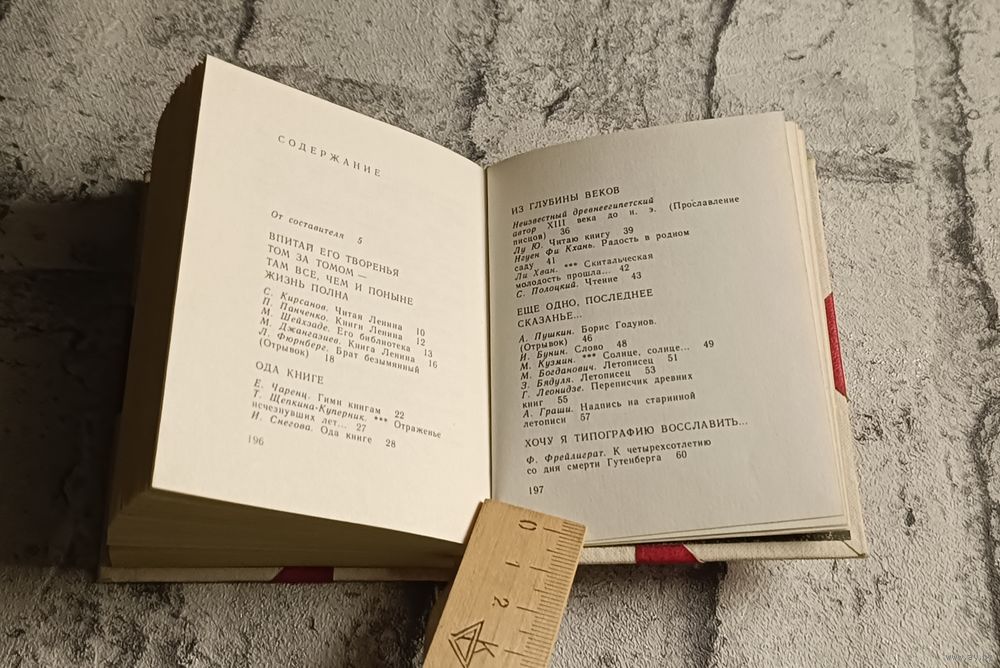 СОДЕРЖАНИЕ
От составителя 5
ВПИТАЙ ЕГО ТВОРЕНЬЯ
ТОМ ЗА ТОМОМ —
ТАМ ВСЕ, ЧЕМ И ПОНЫНЕ
ЖИЗНЬ ПОЛНА
С. Кирсанов. Читая Ленина 10
П. Панченко. Книги Ленина 12
М. Шейхзаде. Его библиотека 13
М. Джангазиев. Книга Ленина 16
Л. Фюрнберг. Брат безымянный
(Отрывок) 18
ОДА КНИГЕ
Е. Чаренц. Гимн книгам 22
Т. Щепкина-Куперник. *** Отраженье
исчезнувших лет... 27
И. Снегова. Ода книге 28
196
ИЗ ГЛУБИНЫ ВЕКОВ
Неизвестный древнеегипетский
автор XIII века до н. э. (Прославление
писцов) 36
Лу Ю. Читаю книгу 39
Нгуен Фи Кхань. Радость в родном
саду 41
Ли Хван. *** Скитальческая
молодость прошла... 42
С. Полоцкий. Чтение 43
ЕЩЕ ОДНО, ПОСЛЕДНЕЕ
СКАЗАНЬЕ...
А. Пушкин. Борис Годунов.
(Отрывок) 46
И. Бунин. Слово 48
М. Кузмин. *** Солнце, солнце... 49
М. Богданович. Летописец 51
З. Бядуля. Летописец 53
Г. Леонидзе. Переписчик древних
книг 55
А. Граши. Надпись на старинной
летописи 57
ХОЧУ Я ТИПОГРАФИЮ ВОССЛАВИТЬ...
Ф. Фрейлиграт. К четырехсотлетию
со дня смерти Гутенберга 60
197
0
1
2